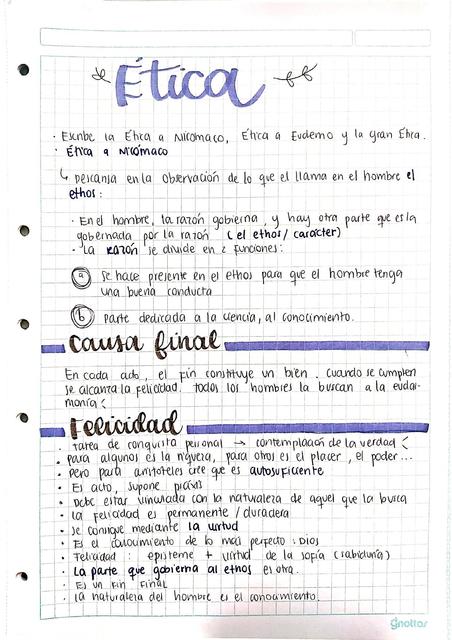 Ética
· Escribe la Ética a Nicómaco, Ética a Eudemo y la Gran Ética.
· Ética a Nicómaco
↳ Descansa en la observación de lo que el llama en el hombre el
ethos:
· En el hombre, la razón gobierna, y hay otra parte que es la
gobernada por la razón (el ethos/carácter)
· La RAZÓN se divide en 2 funciones:
a) Se hace presente en el ethos para que el hombre tenga
una buena conducta
b) Parte dedicada a la ciencia, al conocimiento.
Causa final
En cada acto, el fin constituye un bien. Cuando se cumplen
se alcanza la felicidad. todos los hombres la buscan a la eudai-
monía
Felicidad
· Tarea de conquista personal → contemplación de la verdad
· Para algunos es la riqueza, para otros es el placer, el poder...
· Pero para aristóteles cree que es autosuficiente
· Es acto, supone praxis
· Debe estar vinculada con la naturaleza de aquel que la busca
· La felicidad es permanente / duradera
· Se consigue mediante la virtud
· Es el conocimiento de lo mas perfecto: Dios
· Felicidad: episteme + virtud de la sofía (sabiduría)
· La parte que gobierna al ethos es otra.
· Es un fin Final
· La naturaleza del hombre es el conocimiento.